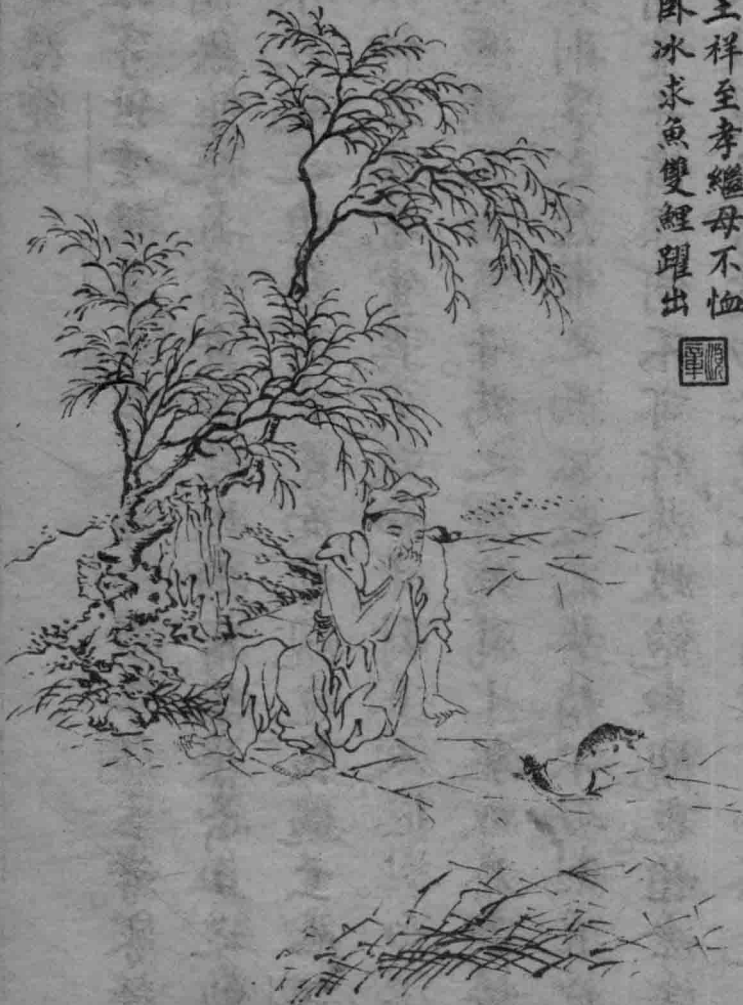 王祥至孝繼母不恤
卧冰求魚雙鯉躍出